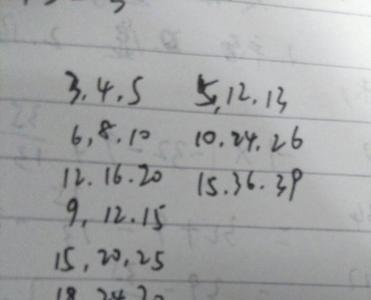 3,4,5
6,8.10
12.16.20
9,12.15
15,20,25
18.24.30
5,12.13
10.24.26
15.36.39